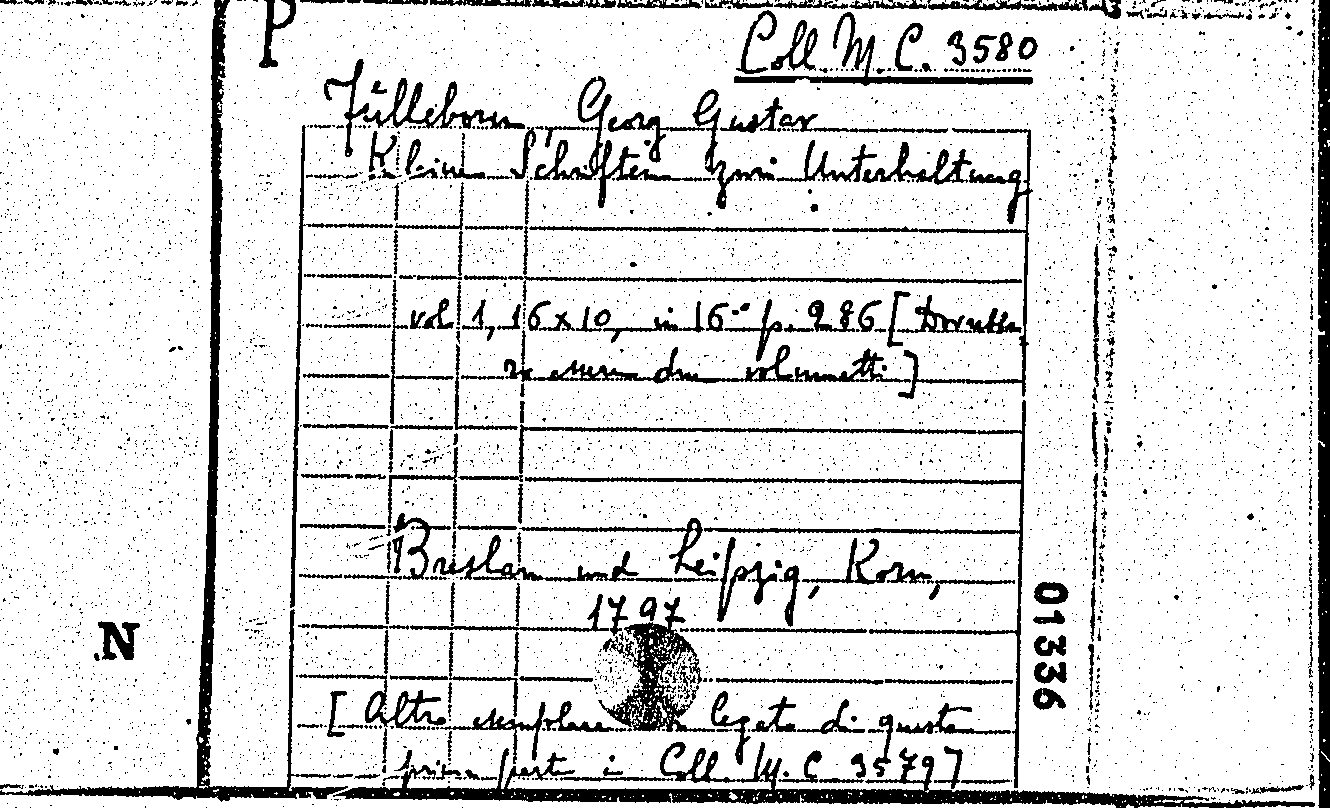 P
Coll. M. C. 3580
Fülleborn, Georg Gustav
Kleine Schriften zur Unterhaltung
vol. 1, 16x10, in 16° p. 286 [Dovrebbe
ro essere due volumetti]
Breslau und Leipzig, Korn,
1797
01336
N
[Altro esemplare non legato di questa
prima parte è Coll. M. C 3579]